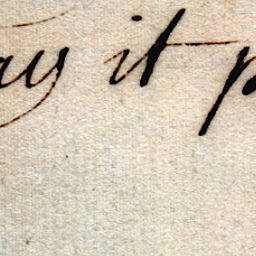 ay it p